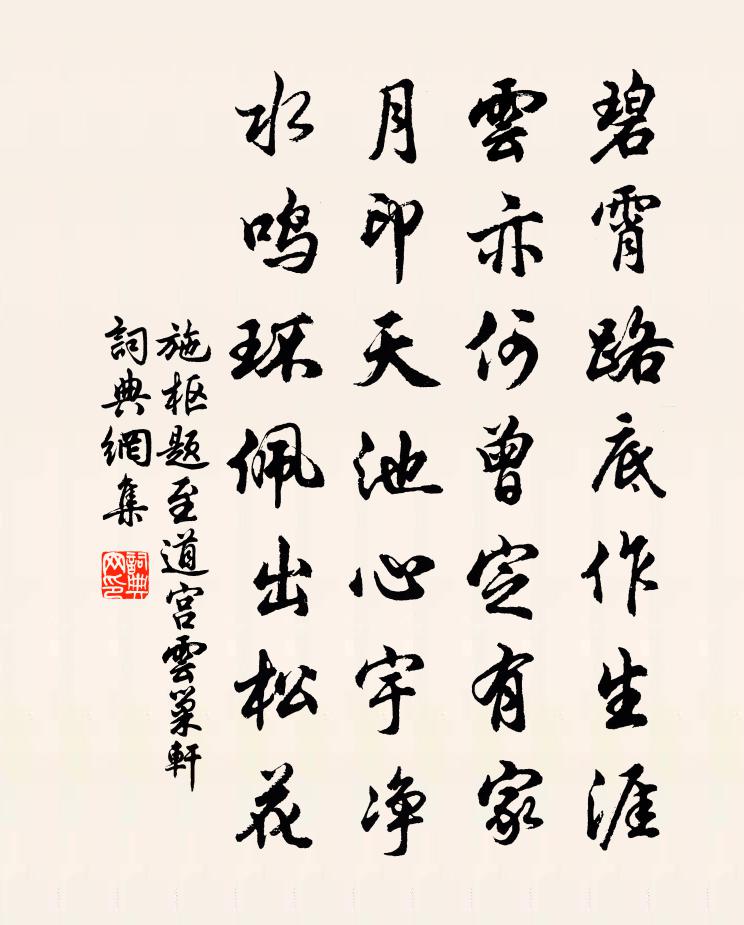 碧霄路底作生涯
雲亦何曾定有家
月印天池心宇净
水鸣环佩出松花
施枢题至道宫雲巢軒
詞典網集
詞典网印